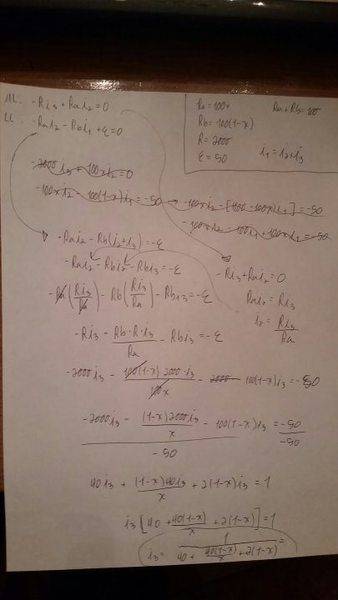 M: -Ri₃ + Rai₂ = 0
Ra = 100x
Ra + Rb = 100
U: -Rai₂ - Rbi₁ + ε = 0
Rb = 100(1-x)
R = 2000
ε = 50
i₁ = i₂ + i₃
-2000i₃ + 100xi₂ = 0
-100xi₂ - 100(1-x)i₁ = -50
-100xi₂ - [100 - 100x]i₁ = -50
-100xi₂ - 100i₁ + 100xi₁ = -50
-Rai₂ - Rb(i₂ + i₃) = -ε
-Rai₂ - Rbi₂ - Rbi₃ = -ε
-Ri₃ + Rai₂ = 0
Rai₂ = Ri₃
-Ra(Ri₃/Ra) - Rb(Ri₃/Ra) - Rbi₃ = -ε
i₂ = Ri₃/Ra
-Ri₃ - Rb·R·i₃/Ra - Rbi₃ = -ε
-2000i₃ - 100(1-x)2000i₃/100x - 100(1-x)i₃ = -50
-2000i₃ - (1-x)2000i₃/x - 100(1-x)i₃ = -50
-50 -50
40i₃ + (1-x)40i₃/x + 2(1-x)i₃ = 1
i₃[40 + 40(1-x)/x + 2(1-x)] = 1
i₃ = 1/(40 + 40(1-x)/x + 2(1-x)) =